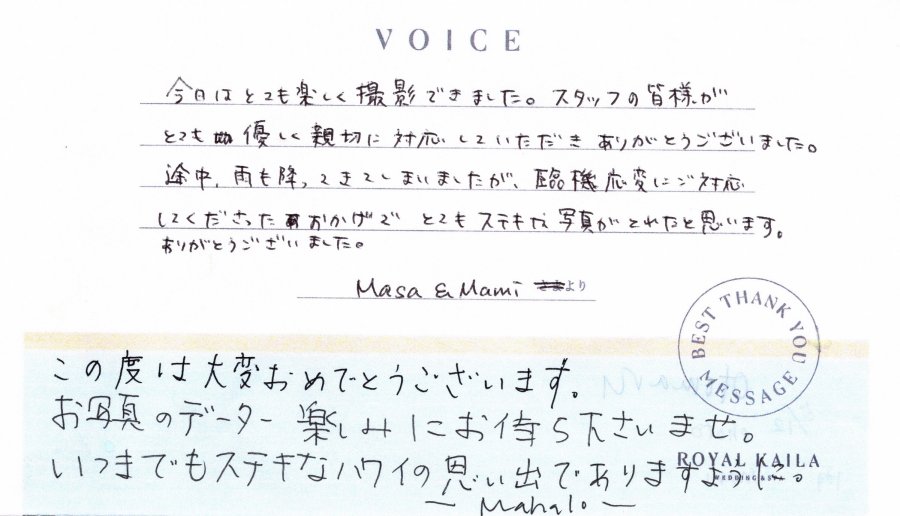 VOICE
今日はとても楽しく撮影できました。スタッフの皆様が
とても優しく親切に対応していただきありがとうございました。
途中、雨も降ってきてしまいましたが、臨機応変にご対応
してくださったおかげで とてもステキな写真がとれたと思います。
ありがとうございました。
Masa & Mami さまより
BEST THANK YOU MESSAGE
この度は大変おめでとうございます。
お写真のデーター楽しみにお待ち下さいませ。
いつまでもステキなハワイの思い出でありますように。
ROYAL KAILA
WEDDING & SPA
〜 Mahalo 〜